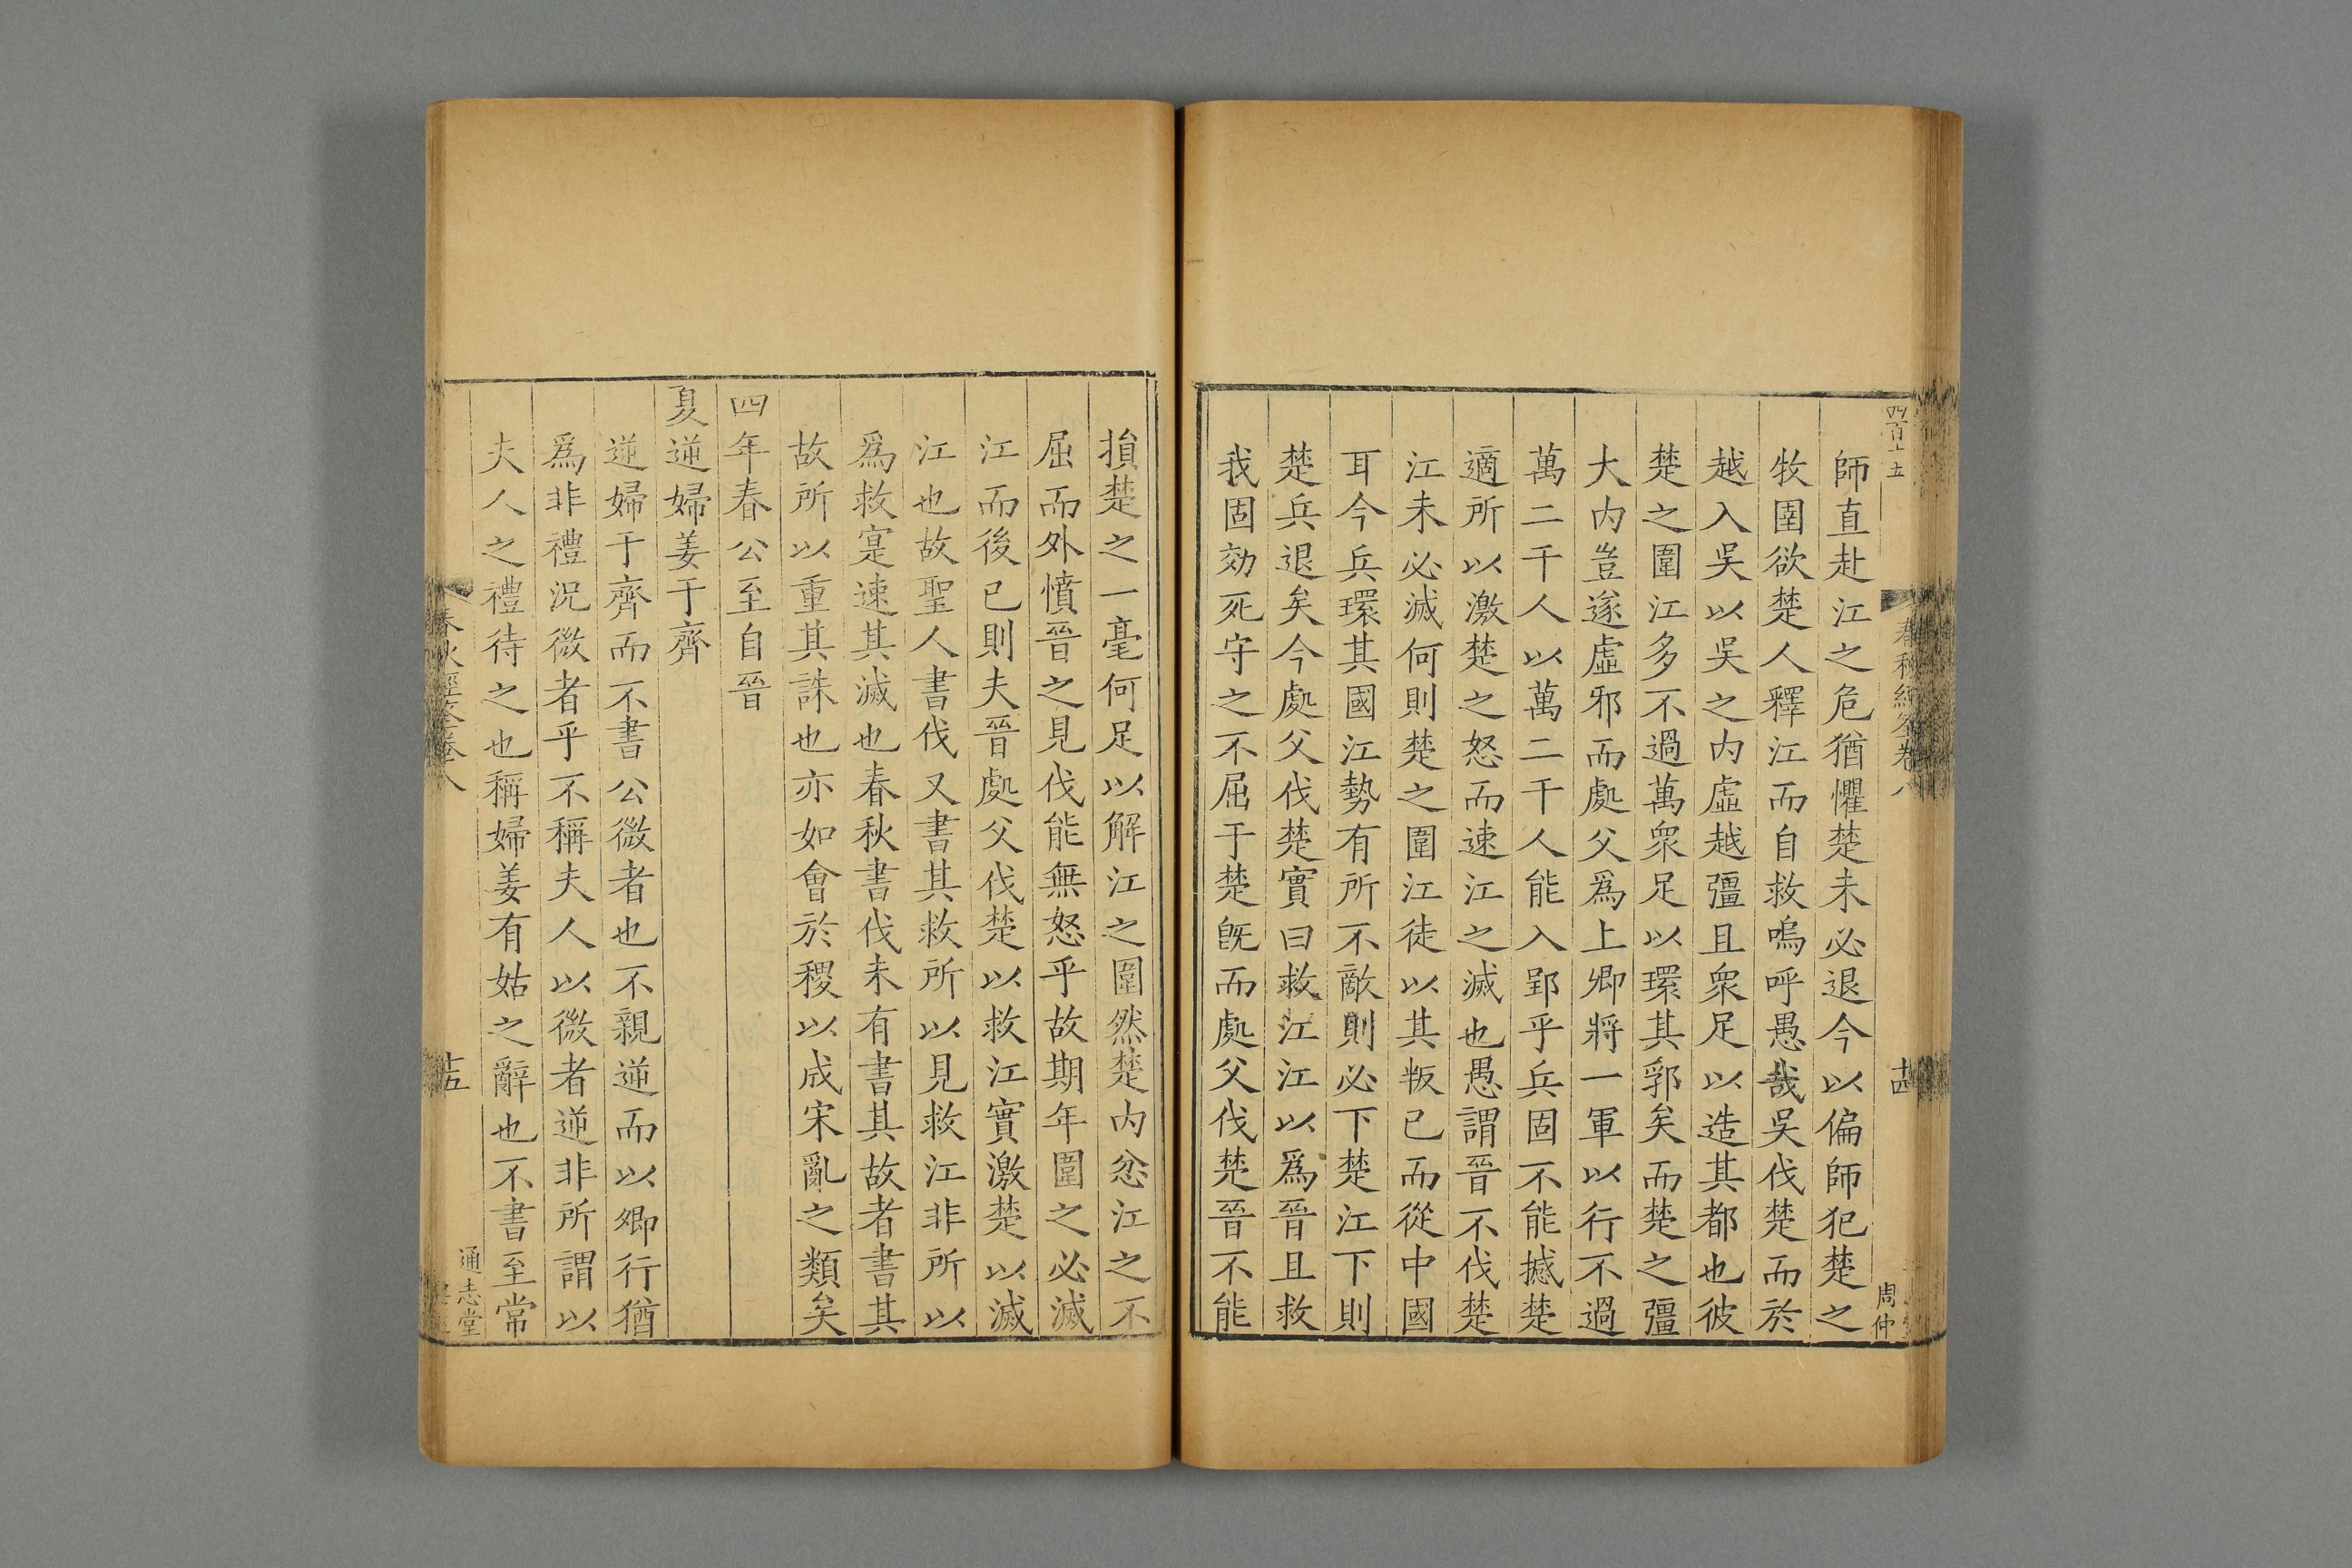 四百十五
春秋經筌卷八
十四
周仲
師直赴江之危猶懼楚未必退今以偏師犯楚之
牧圉欲楚人釋江而自救嗚呼愚哉吳伐楚而於
越入吳以吳之內虛越彊且衆足以造其都也彼
楚之圍江多不過萬衆足以環其郛矣而楚之彊
大內豈遂虛邪而處父爲上卿將一軍以行不過
萬二千人以萬二千人能入郢乎兵固不能撼楚
適所以激楚之怒而速江之滅也愚謂晉不伐楚
江未必滅何則楚之圍江徒以其叛已而從中國
耳今兵環其國江勢有所不敵則必下楚江下則
楚兵退矣今處父伐楚實曰救江江以爲晉且救
我固効死守之不屈于楚旣而處父伐楚晉不能
損楚之一毫何足以解江之圍然楚内忿江之不
屈而外憤晉之見伐能無怒乎故期年圍之必滅
江而後已則夫晉處父伐楚以救江實激楚以滅
江也故聖人書伐又書其救所以見救江非所以
爲救寔速其滅也春秋書伐未有書其故者書其
故所以重其誅也亦如會於稷以成宋亂之類矣
四年春公至自晉
夏逆婦姜于齊
逆婦于齊而不書公微者也不親逆而以卿行猶
爲非禮況微者乎不稱夫人以微者逆非所謂以
夫人之禮待之也稱婦姜有姑之辭也不書至常
春秋經筌卷八
十五
通志堂